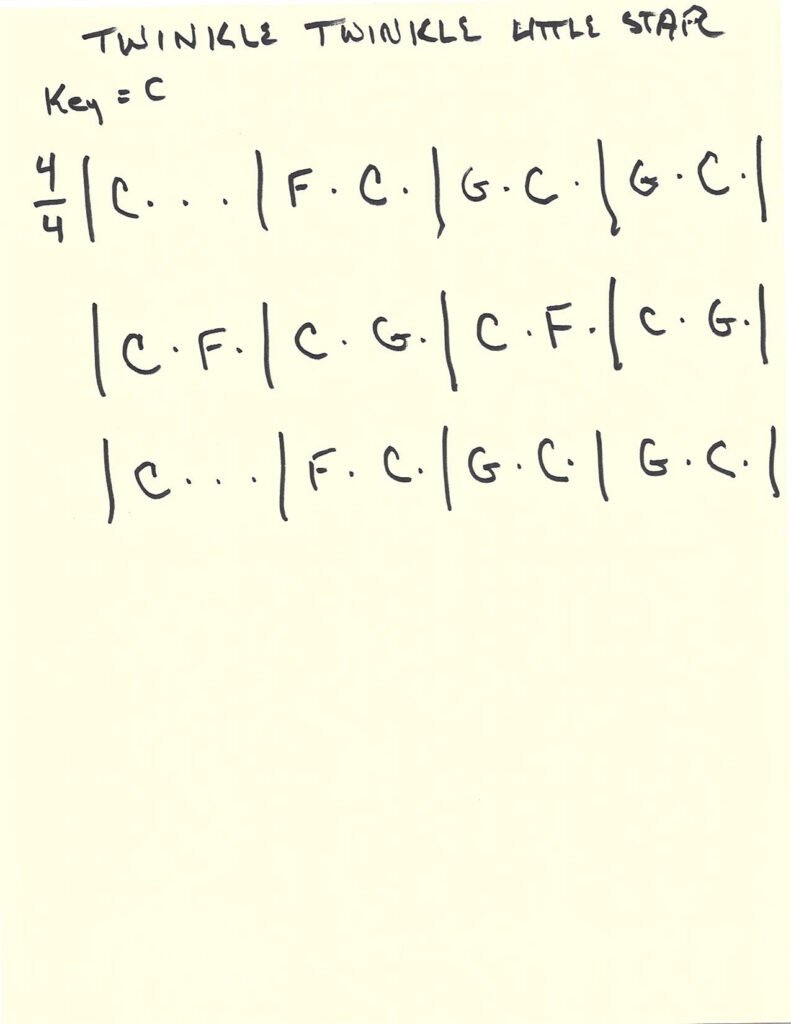 TWINKLE TWINKLE LITTLE STAR
Key = C
4/4 | C . . . | F . C . | G . C . | G . C . |
| C . F . | C . G . | C . F . | C . G . |
| C . . . | F . C . | G . C . | G . C . |